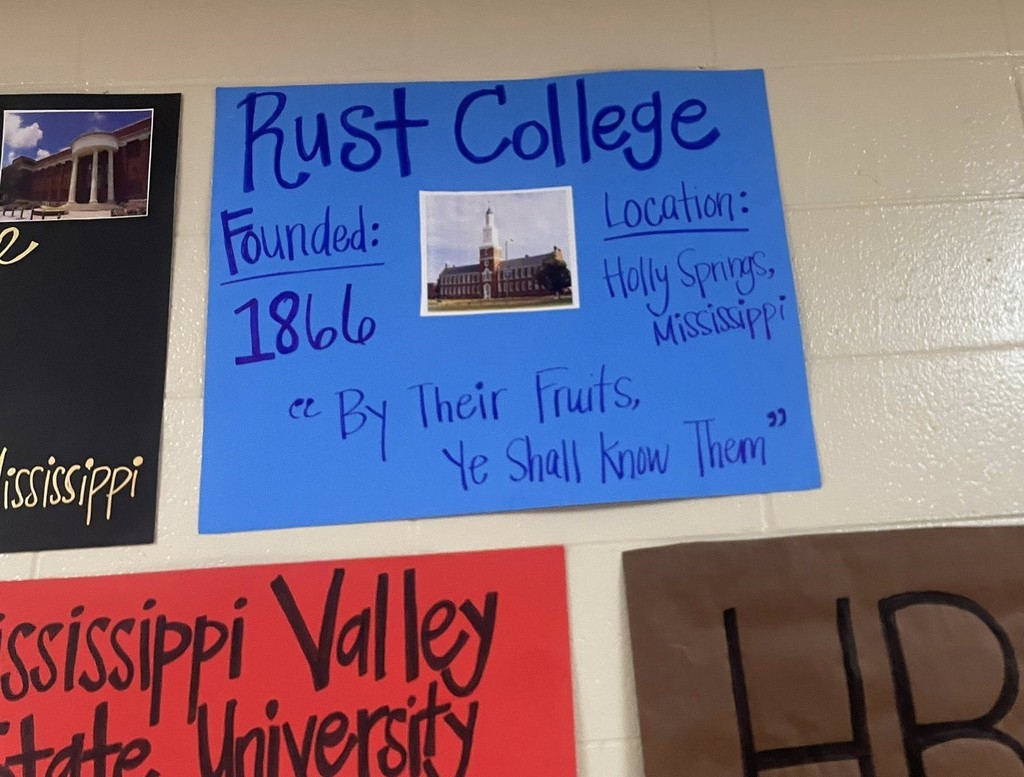 Rust College
Founded:
1866
Location:
Holly Springs,
Mississippi
“By Their Fruits,
Ye Shall Know Them”
e
Mississippi
ississippi Valley
State University
HB